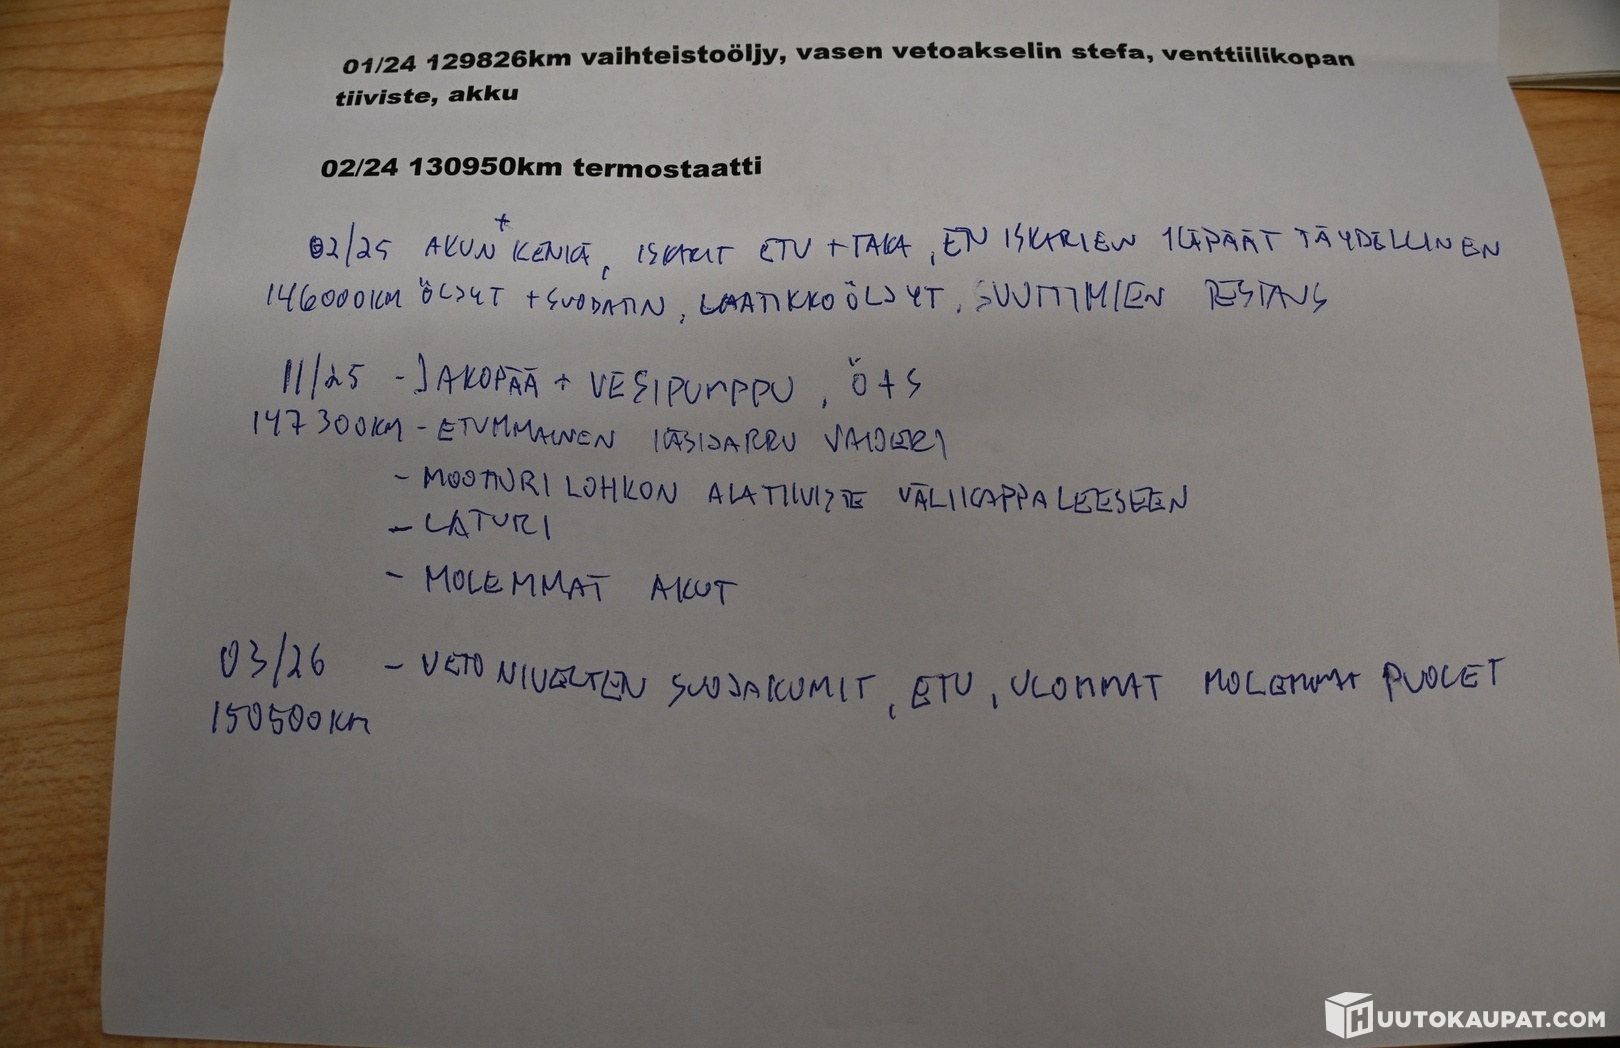 01/24 129826km vaihteistoöljy, vasen vetoakselin stefa, venttiilikopan
tiiviste, akku
02/24 130950km termostaatti
02/25 AKUN + KENKÄ, ISKARIT ETU + TAKA, ISKARIEN YLÄPÄÄT TÄYDELLINEN
146000KM ÖLJYT + SUODATIN, LAATIKKOÖLJYT, SUUTTIMIEN TESTAUS
11/25 - JAKOPÄÄ + VESIPUMPPU, Ö+S
147300KM - ETUMMAINEN KÄSIJARRU VAIJERI
- MOOTTORI LOHKON ALATIIVISTE VÄLIKAPPALEESEEN
- LATURI
- MOLEMMAT AKUT
03/26 - VETONIVELTEN SUOJAKUMIT, ETU, ULOMMAT MOLEMMAT PUOLET
150500KM
HUUTOKAUPAT.COM